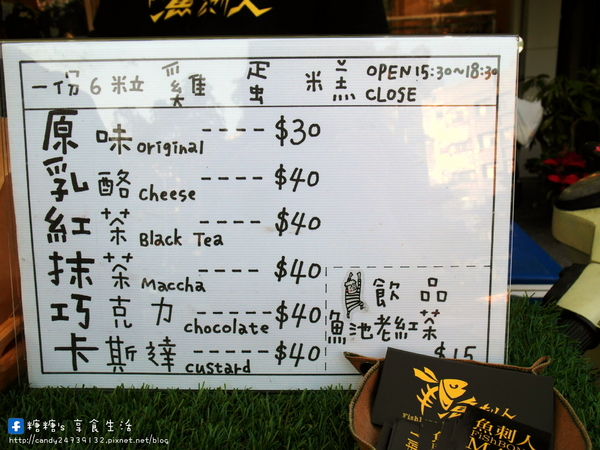 魚刺人
一份6粒 雞蛋 米羔 OPEN 15:30~18:30
CLOSE
原味 original ---- $30
乳酪 cheese ---- $40
紅茶 Black Tea ---- $40
抹茶 Maccha ---- $40
巧克力 chocolate ---- $40
卡斯達 custard ---- $40
飲品
魚池老紅茶
$15
魚刺人
魚刺人
FishBONE
糖糖's 享食生活
http://candy24739132.pixnet.net/blog